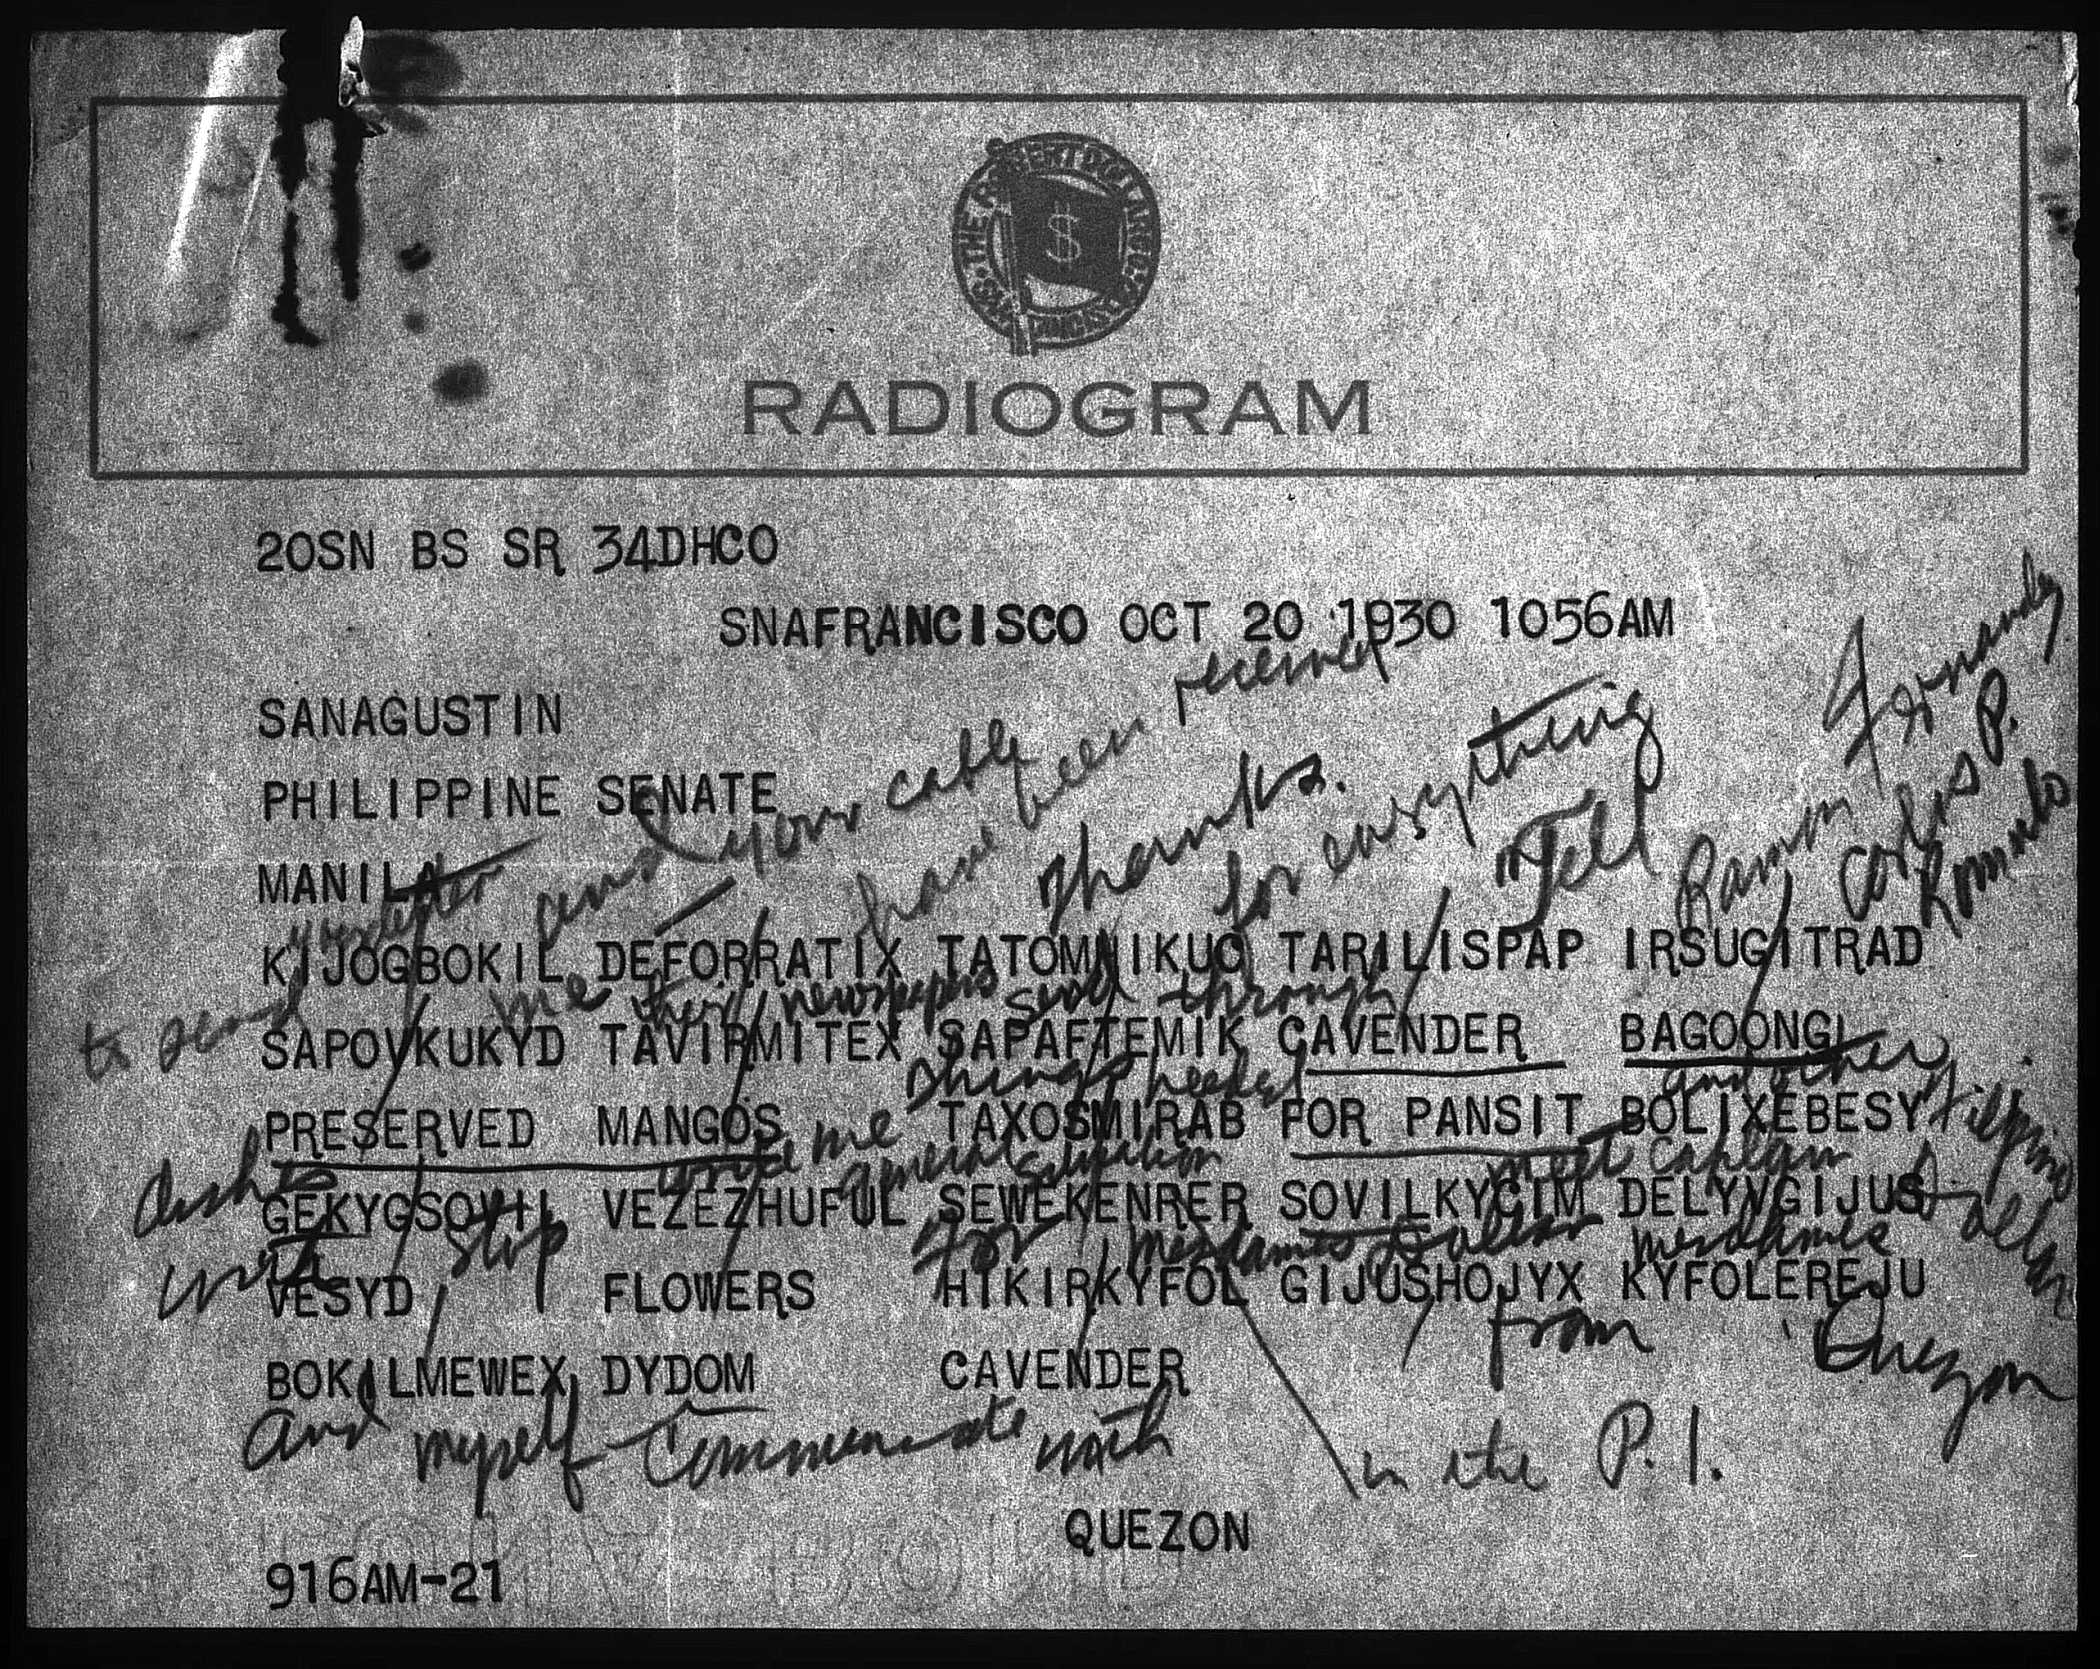 RADIOGRAM
20SN BS SR 34DHCO
SNAFRANCISCO OCT 20 1930 1056AM
SANAGUSTIN
PHILIPPINE SENATE
MANILA
and your cable
have been received
Thanks.
for everything
Tell
Ramon Fernandez
Carlos P.
Romulo
KIJOGBOKIL DEFORRATIX TATOMNIKUC TARILISPAP IRSUGITRAD
to send me their newspapers send through
SAPOVKUKYD TAVIRMITEX SAPAFTEMIK CAVENDER BAGOONGI
things needed and other Filipino
PRESERVED MANGOS TAXOSMIRAB FOR PANSIT BOLIXEBESY
dishes me general meet
GEKYGSOVIL VEZEZHUFUL SEWEKENRER SOVILKYCIM DELYNGIJUS
with stop for mesdames mesdames
VESYD FLOWERS HIKIRKYFOL GIJUSHOJYX KYFOLEREJU
from Quezon
BOKILMEWEX DYDOM CAVENDER
and myself Communicate with
in the P.I.
QUEZON
916AM-21